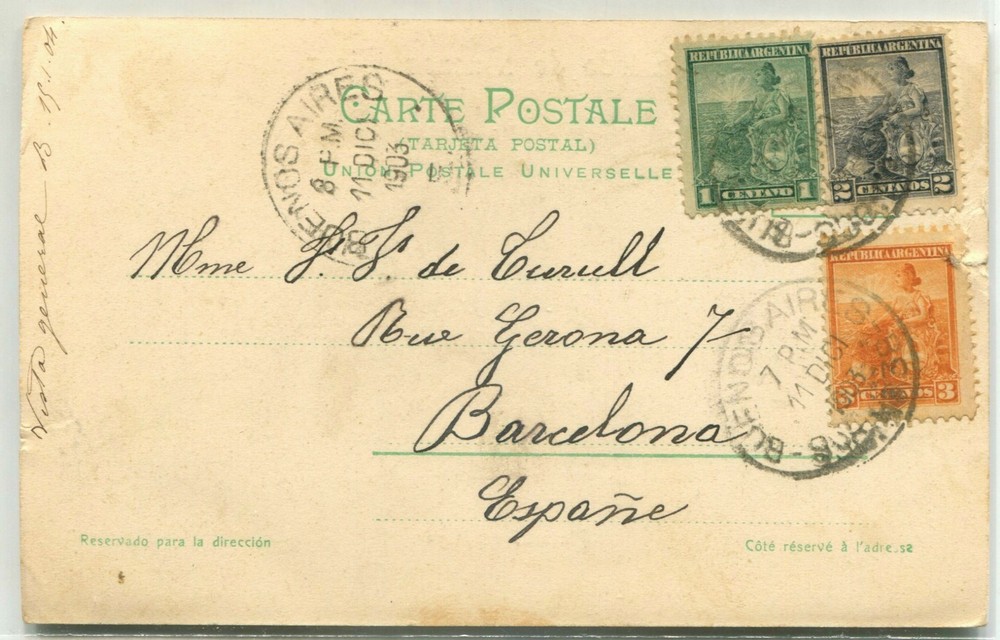 CARTE POSTALE
(TARJETA POSTAL)
UNION POSTALE UNIVERSELLE
REPUBLICA ARGENTINA
1 CENTAVO 1
REPUBLICA ARGENTINA
2 CENTAVOS 2
REPUBLICA ARGENTINA
CENTAVOS 3
BUENOS AIRES
8 P.M.
11 DIC
1903
BUENOS AIRES
7 P.M.
11 DIC
Mme de
Rue Gerona 7
Barcelona
Españe
Reservado para la dirección
Côté réservé à l'adresse
Vista general B. 13.1.04.